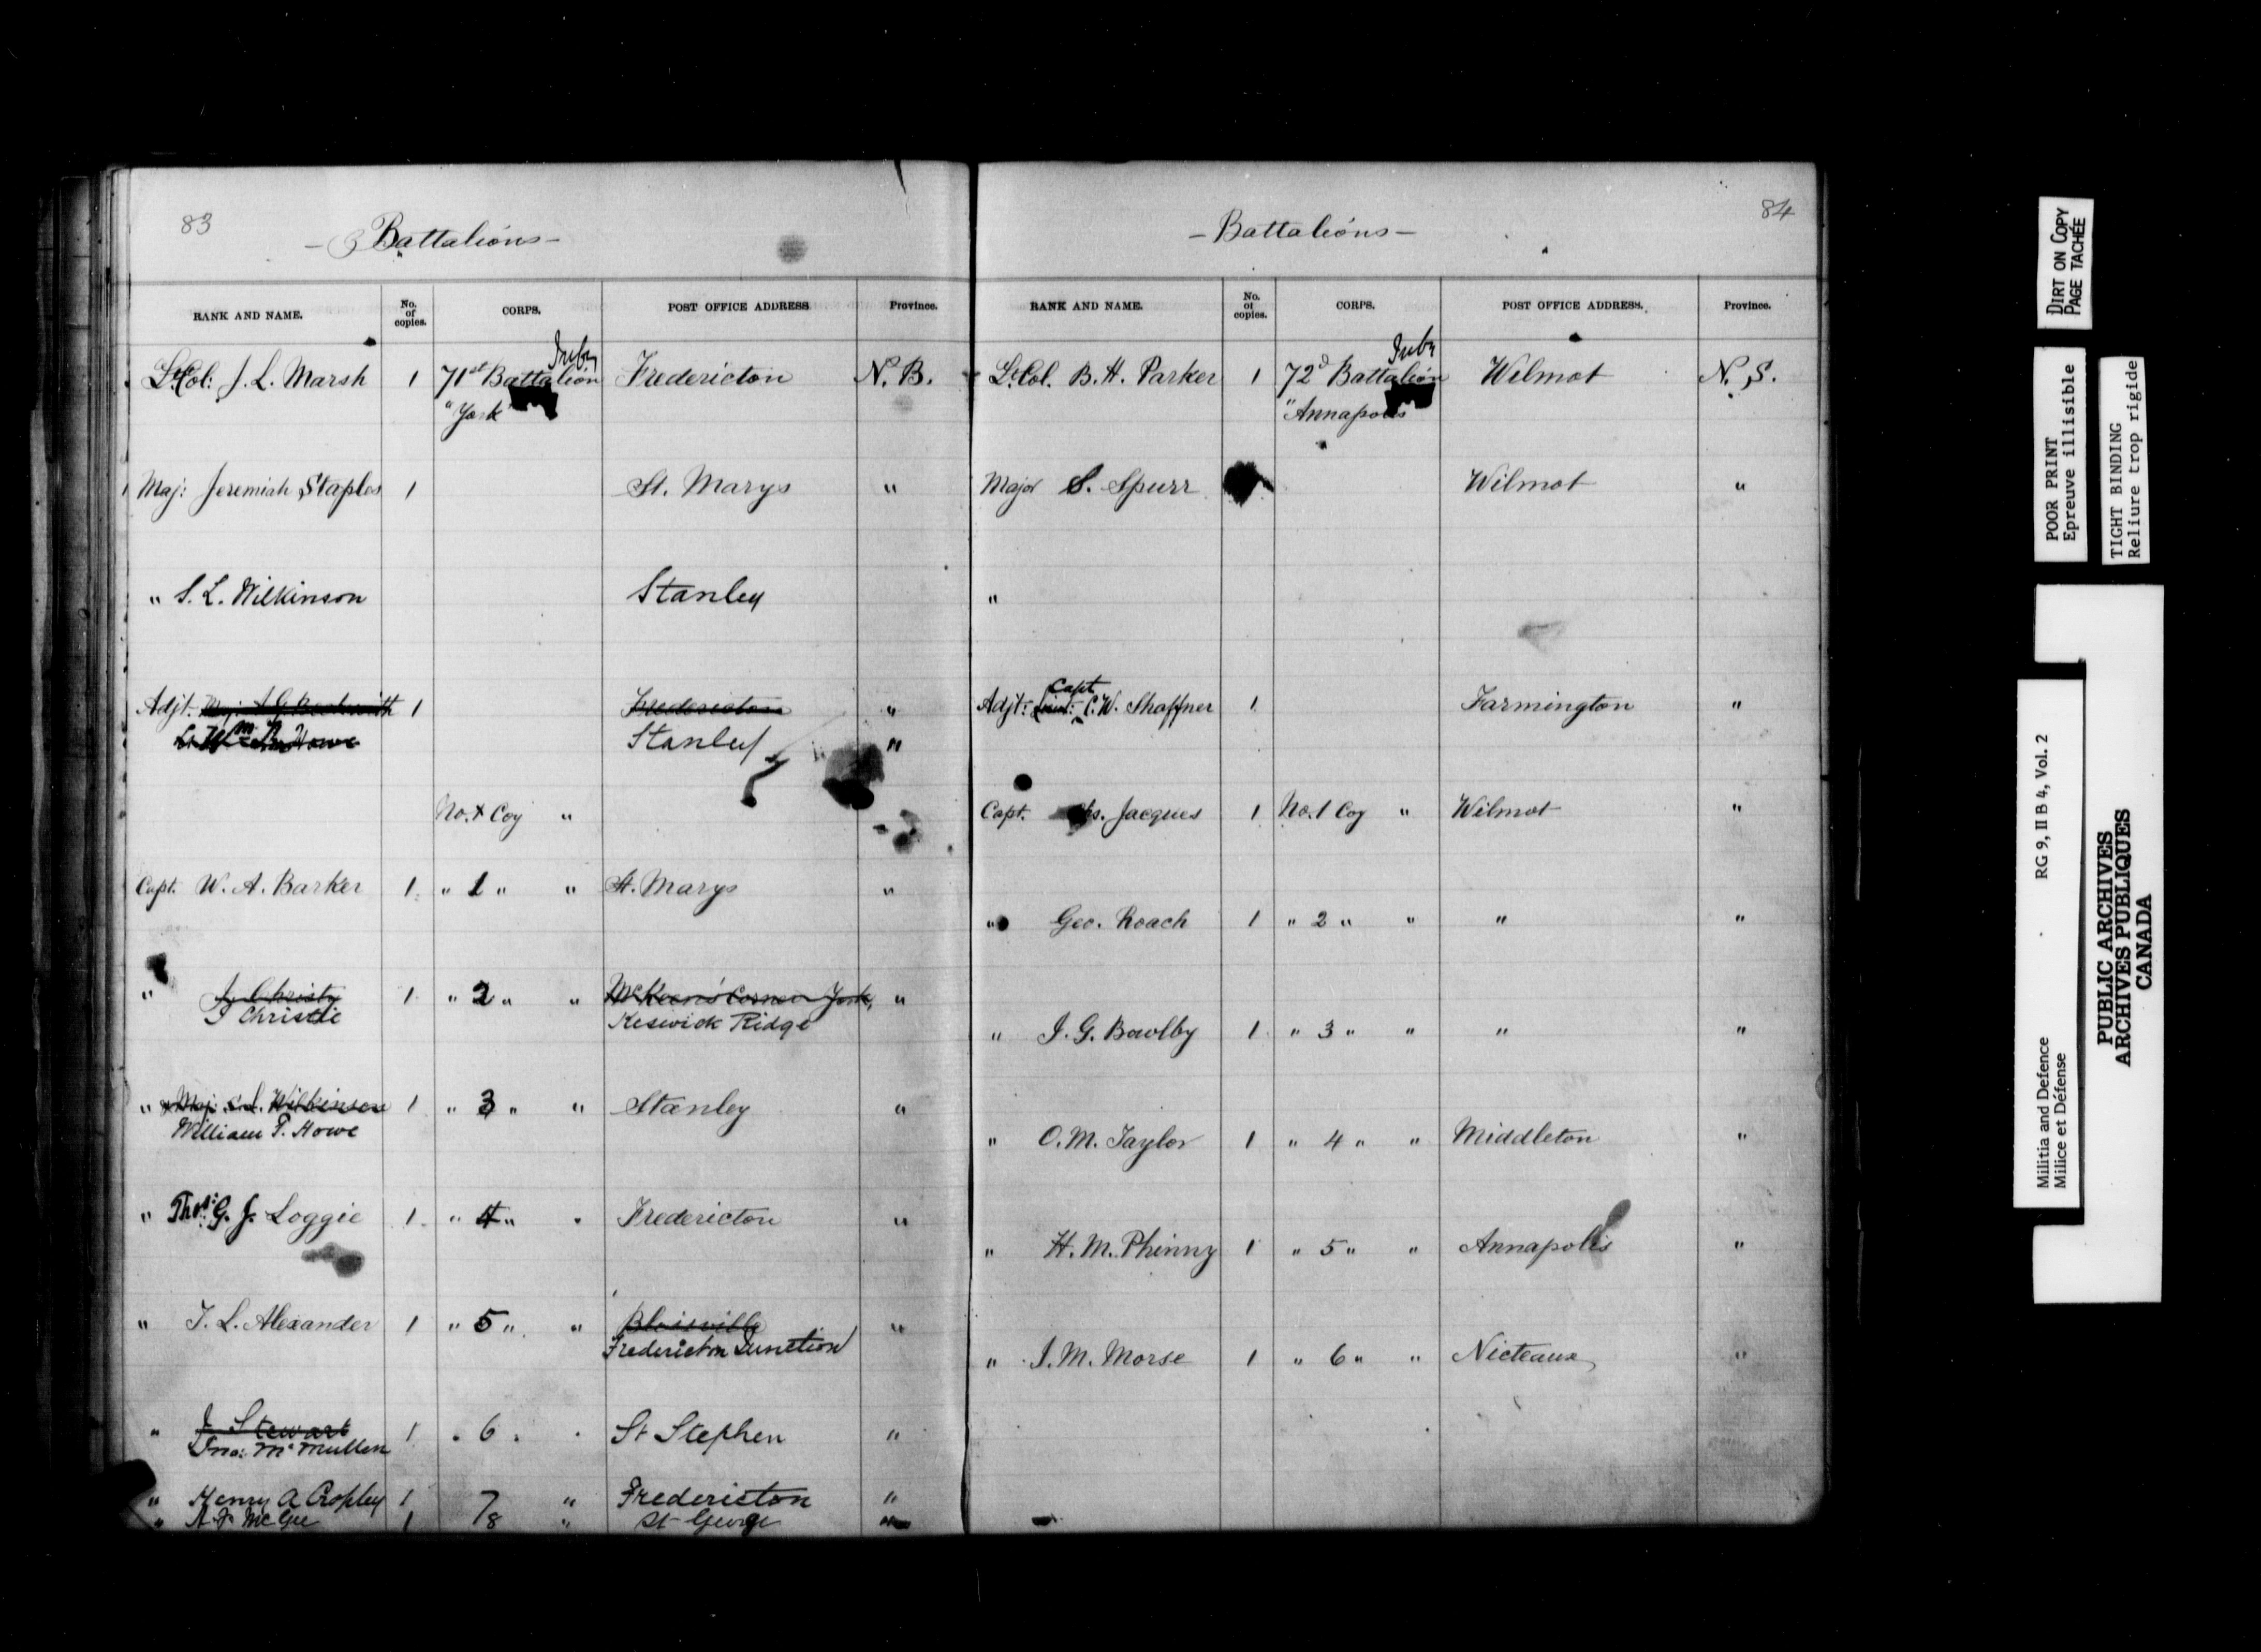 83
- Battalions -
RANK AND NAME. No. of copies. CORPS. POST OFFICE ADDRESS Province.
Lt Col: J. L. Marsh 1 71st Battalion Infy Fredericton N. B.
"York"
Maj: Jeremiah Staples 1 St. Marys "
" S. L. Wilkinson Stanley
Adjt. Maj. A G Beckwith 1 Fredericton "
Lt Wm Howe Stanley "
No. Coy "
Capt. W. A. Barker 1 " 1 " " St. Marys "
" J. Christy 1 " 2 " " McKeen's Corner York "
J Christie Keswick Ridge
" Maj. S. L. Wilkinson 1 " 3 " " Stanley "
William T. Howe
" Thos. G. J. Loggie 1 " 4 " " Fredericton "
" T. L. Alexander 1 " 5 " " Blissville "
Fredericton Junction
" J Stewart 1 " 6 " " St Stephen "
Jno: McMullen
" Henry A Cropley 1 7 " Fredericton "
" McGee 1 8 " St George "
84
- Battalions -
RANK AND NAME. No. of copies. CORPS. POST OFFICE ADDRESS. Province.
Lt. Col. B. H. Parker 1 72d Battalion Infy Wilmot N. S.
"Annapolis"
Major S. Spurr Wilmot "
"
Capt
Adjt: Lieut: C. W. Shaffner 1 Farmington "
Capt. Jacques 1 No. 1 Coy " Wilmot "
" Geo. Roach 1 " 2 " " " "
" J. G. Bowlby 1 " 3 " " " "
" O. M. Taylor 1 " 4 " " Middleton "
" H. M. Phinny 1 " 5 " " Annapolis "
" J. M. Morse 1 " 6 " " Nicteaux "
DIRT ON COPY
PAGE TACHÉE
POOR PRINT
Epreuve illisible
TIGHT BINDING
Reliure trop rigide
Militia and Defence RG 9, II B 4, Vol. 2
Milice et Défense
PUBLIC ARCHIVES
ARCHIVES PUBLIQUES
CANADA